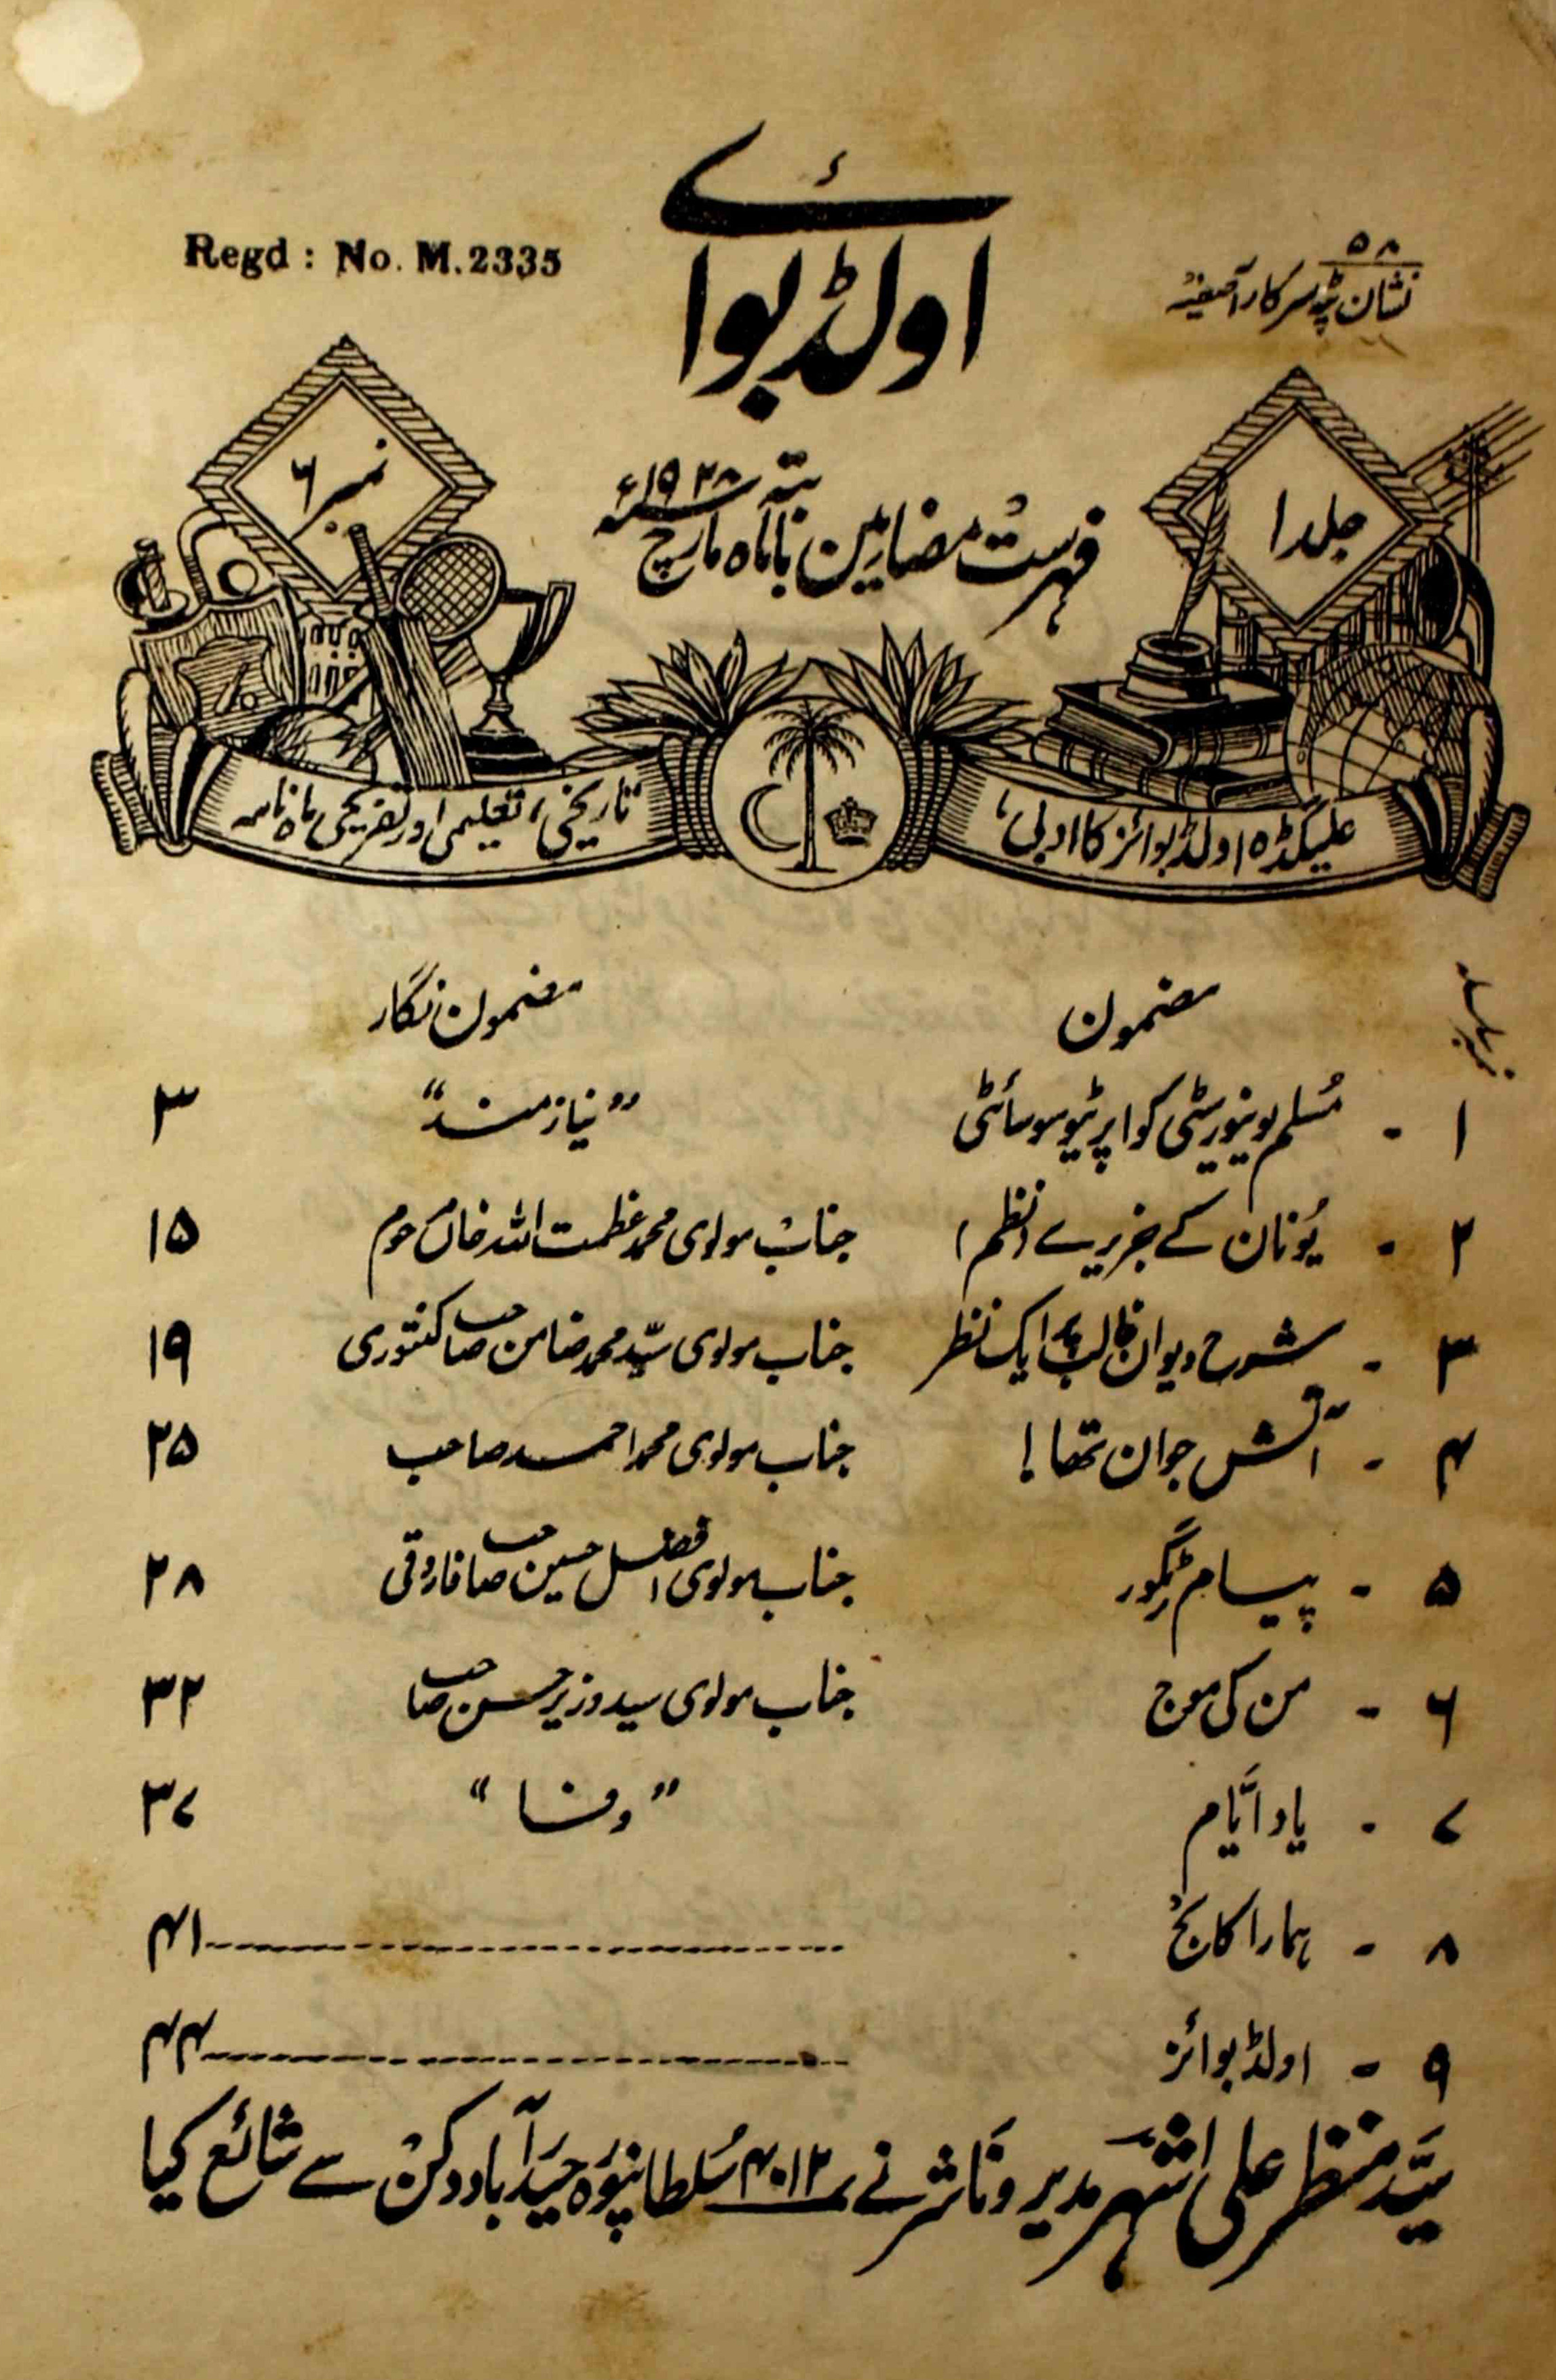 اولڈ بوائے
Regd : No. M.2335
۵۸
نشان ٹپہ سرکار آصفیہ
جلد ۱
نمبر ۶
فہرست مضامین بابتہ ماہ مارچ ۱۹۲۸ء
علیگڈہ اولڈ بوائز کا ادبی،
تاریخی، تعلیمی اور تفریحی ماہ نامہ
مضمون مضمون نگار
۱ - مُسلم یونیورسٹی کواپریٹیو سوسائٹی ”نیازمند“ ۳
۲ - یُونان کے جزیرے (نظم) جناب مولوی محمد عظمت اللہ خاں مرحوم ۱۵
۳ - شرح دیوان غالب پر ایک نظر جناب مولوی سیّد محمد ضامن صاحب کنتوری ۱۹
۴ - آتش جوان تھا! جناب مولوی محمد احمد صاحب ۲۵
۵ - پیام ٹیگور جناب مولوی افضل حسین صاحب فاروقی ۲۸
۶ - من کی موج جناب مولوی سید وزیر حسن صاحب ۳۲
۷ - یاد ایّام ”وفا“ ۳۷
۸ - ہمارا کالج ۴۱
۹ - اولڈ بوائز ۴۴
سیّد منظر علی اشہر مدیر و ناشر نے ۴۰۱۲ سُلطانپورہ حیدرآباد دکن سے شائع کیا